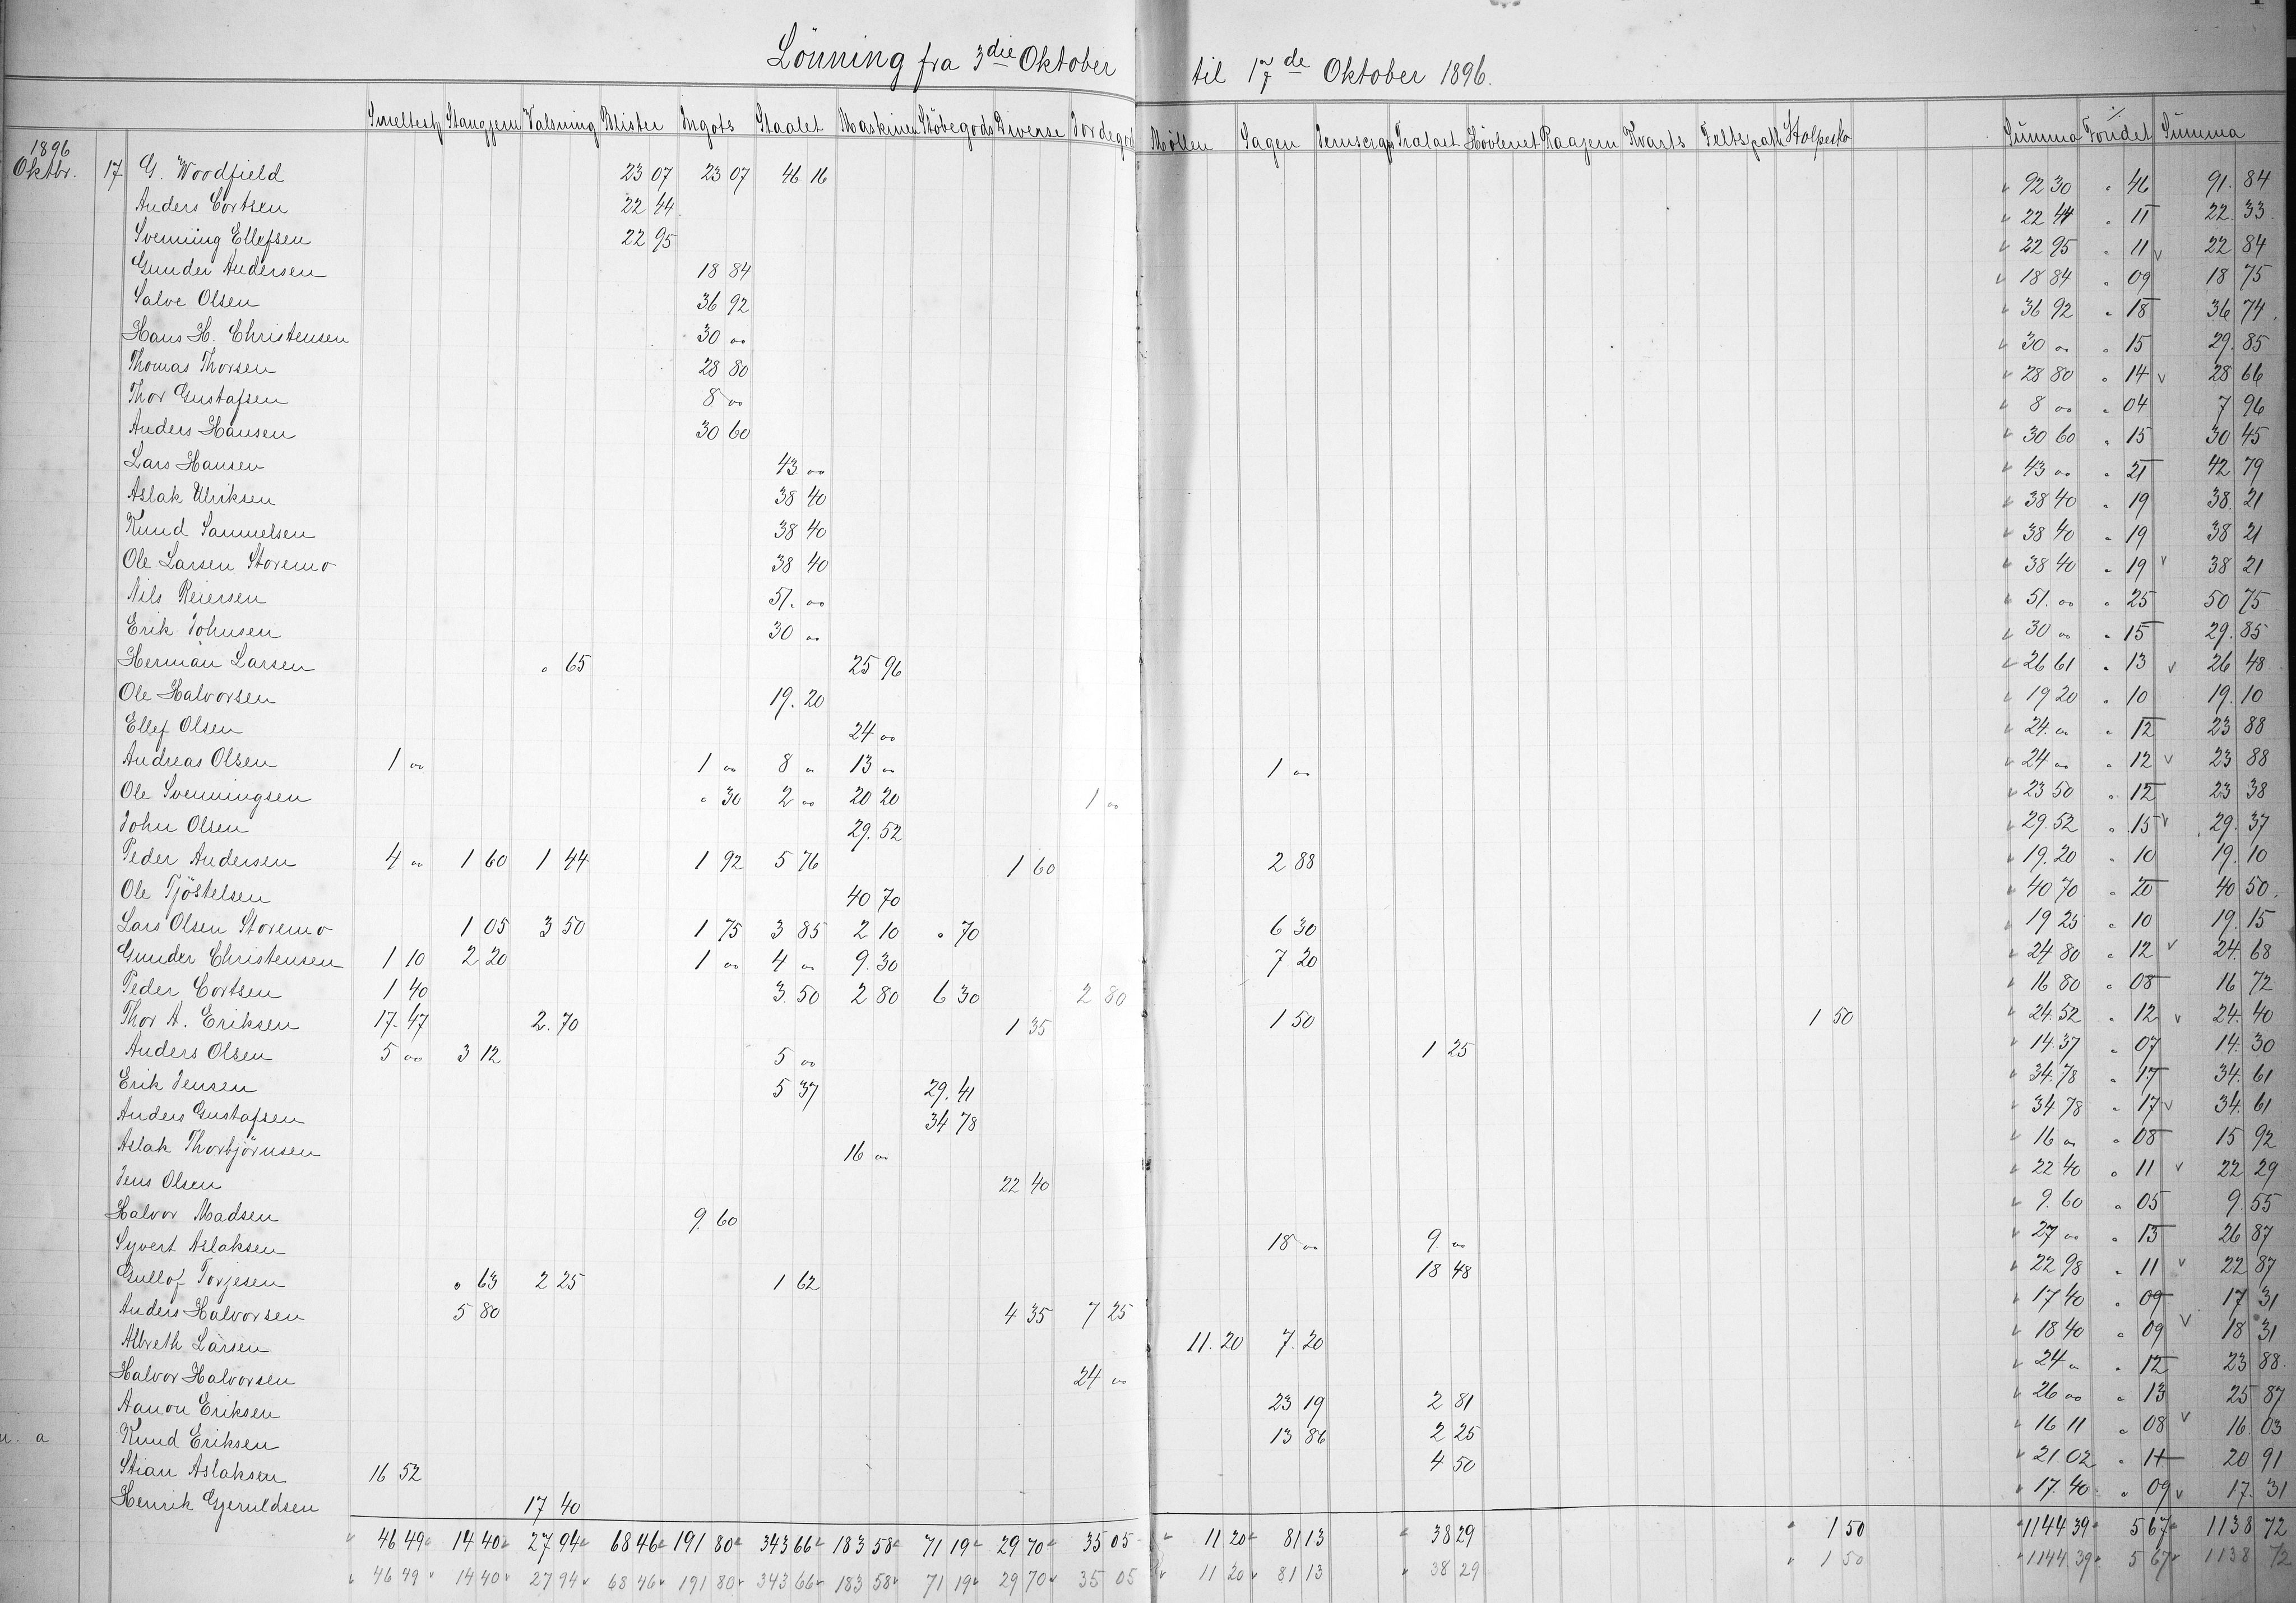 Lönning fra 3die Oktober til 17de Oktober 1896.
Stangjern Valsning Blister Ingots Staalet Maskinen Stöbegods Diverse Jordegods Möllen Sagen Hövleriet Raajern Kvarts Feltspath Summa % Fondet Summa
1896
Oktbr. 17 G. Woodfield 23 07 23 07 46 16 92 30 " 46 91. 84
Anders Cortsen 22 44 22 44 " 11 22. 33
Svenning Ellefsen 22 95 22 95 " 11 22 84
Gunder Andersen 18 84 18 84 " 09 18 75
Salve Olsen 36 92 36 92 " 18 36 74
Hans H. Christensen 30 00 30 00 " 15 29. 85
Thomas Thorsen 28 80 28 80 " 14 28 66
Thor Gustafsen 8 00 8 00 " 04 7 96
Anders Hansen 30 60 30 60 " 15 30 45
Lars Hansen 43 00 43 00 " 21 42 79
Aslak Ulriksen 38 40 38 40 " 19 38. 21
Knud Samuelsen 38 40 38 40 " 19 38 21
Ole Larsen Storemo 38 40 38 40 " 19 38 21
Nils Reiersen 51. 00 51. 00 " 25 50 75
Erik Johnsen 30 00 30 00 " 15 29. 85
Herman Larsen " 65 25 96 26 61 " 13 26 48
Ole Halvorsen 19. 20 19 20 " 10 19. 10
Ellef Olsen 24 00 24. 00 " 12 23 88
Andreas Olsen 1 00 1 00 8 00 13 00 1 00 24 00 " 12 23 88
Ole Svenningsen " 30 2 00 20 20 1 00 23 50 " 12 23 38
John Olsen 29. 52 29. 52 " 15 29. 37
Peder Andersen 4 00 1 60 1 44 1 92 5 76 1 60 2 88 19. 20 " 10 19. 10
Ole Tjöstelsen 40 70 40 70 " 20 40 50
Lars Olsen Storemo 1 05 3 50 1 75 3 85 2 10 " 70 6 30 19 25 " 10 19. 15
Gunder Christensen 1 10 2 20 1 00 4 00 9. 30 7. 20 24 80 " 12 24. 68
Peder Cortsen 1 40 3. 50 2 80 6 30 2 80 16 80 " 08 16 72
Thor A. Eriksen 17. 47 2. 70 1 35 1 50 1 50 24. 52 " 12 24. 40
Anders Olsen 5 00 3 12 5 00 1 25 14. 37 " 07 14. 30
Erik Jensen 5 37 29. 41 34. 78 " 17 34. 61
Anders Gustafsen 34 78 34 78 " 17 34. 61
Aslak Thorbjörnsen 16 00 16 00 " 08 15 92
Jens Olsen 22 40 22 40 " 11 22 29
Halvor Madsen 9. 60 9. 60 " 05 9. 55
Syvert Aslaksen 18 00 9. 00 27 00 " 13 26 87
Gullof Torjesen " 63 2 25 1 62 18 48 22 98 " 11 22 87
Anders Halvorsen 5 80 4 35 7 25 17 40 " 09 17 31
Albreth Larsen 11. 20 7. 20 18 40 " 09 18 31
Halvor Halvorsen 24 00 24 00 " 12 23 88
Aanon Eriksen 23 19 2 81 26 00 " 13 25 87
Knud Eriksen 13 86 2 25 16 11 " 08 16 03
Stian Aslaksen 16 52 4 50 21. 02 " 11 20 91
Henrik Gjeruldsen 17 40 17. 40 " 09 17. 31
46 49 14 40 27 94 68 46 191 80 343 66 183 58 71 19 29 70 35 05 11 20 81 13 38 29 1 50 1144 39 5 67 1138 72
46 49 14 40 27 94 68 46 191 80 343 66 183 58 71 19 29 70 35 05 11 20 81 13 38 29 1 50 1144 39 5 67 1138 72